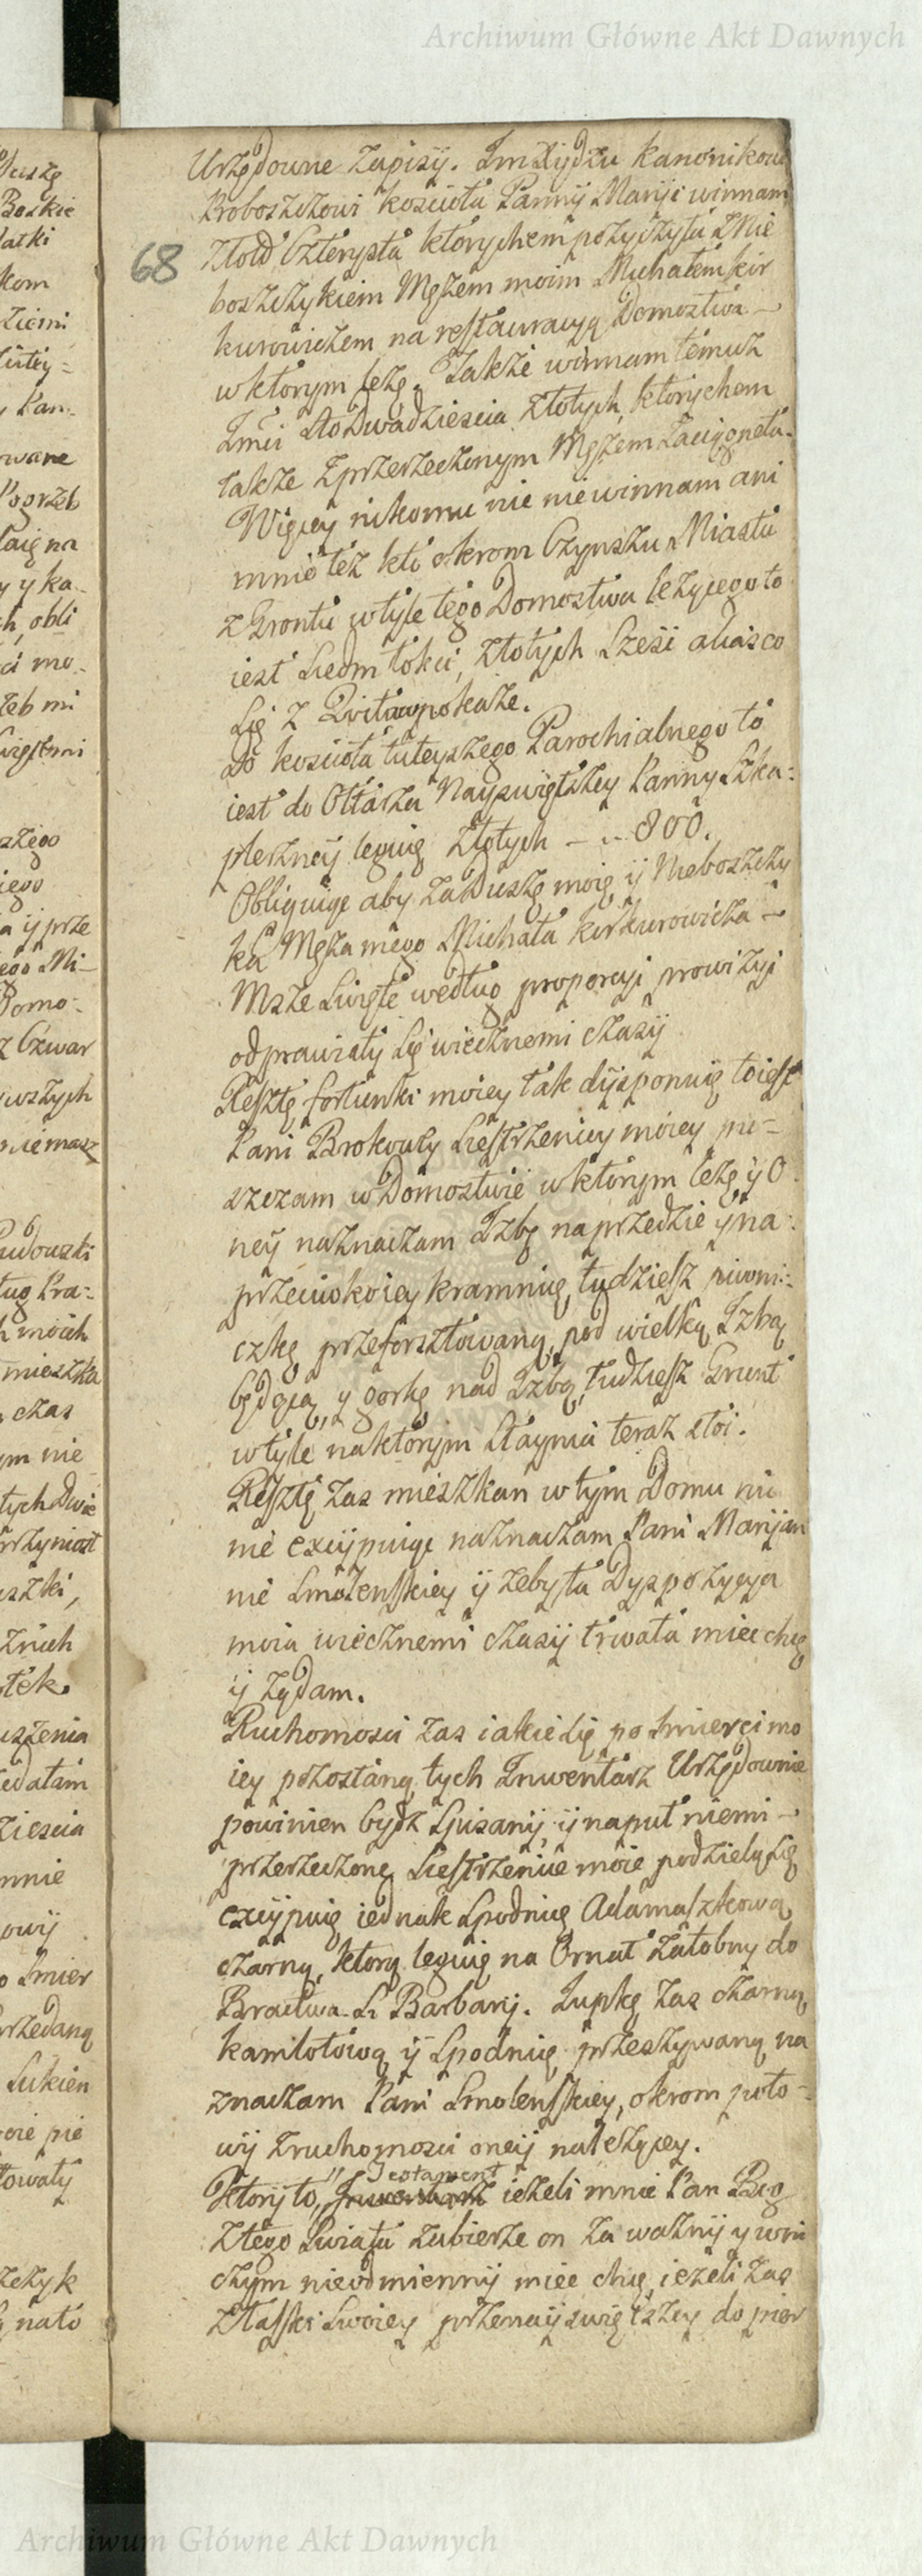 Archiwum Główne Akt Dawnych
Urzędowne zapisy. Jm Xiędzu kanonikowi
Proboszczowi kościoła Panny Maryi winnam
68
złotd Czterysta ktorychem pożyczyła z Nie
boszczykiem Mężem moim Michałem kir
kurowiczem na restauracyą Domostwa –
w ktorym leżę. Także winnam temuż
Jmci sto Dwadziescia złotych, ktorychem
także z przerzeczonym Mężem zaciągneła.
Więcey nikomu nic niewinnam ani
mnie też kto okrom Czynszu Miastu
z Grontu w tyle tego Domostwa leżącego to
iest Siedm łokci, złotych sześć alias co
się z Kwitów pokaże.
do kościoła tuteyszego Parochialnego to
iest do Ołtarza Nayswiętszey Panny Szka-
plerzney leguię złotych – .. 800.
Obliguiąc aby za Duszę moię y Nieboszczy
ka Męża mego Michała kirkurowicza –
Msze Swięte według proporcyi prowizyi
odprawiały się wiecznemi czasy
Resztę fortunki moiey tak dysponuię to iest
Pani Brokowły Siestrzenicy moiey pu-
szczam w Domostwie w ktorym leżę y O
ney naznaczam Izbę naprzedzie y na-
przeciwko iey kramnicę, tudziesz piwni-
czkę przeforsztowaną, pod wielką Izbą
będącą, y gorkę nad Izbą, tudziesz Grunt
w tyle na ktorym staynia teraz stoi.
Resztę zas mieszkan w tym Domu nic
nie excypuiąc naznaczam Pani Maryan
nie Smolenskiey y żeby ta Dyspozycya
moia wiecznemi czasy trwała miec chcę
y żądam.
Ruchomosci zas iakie się po smierci mo
iey pozostaną, tych Inwentarz Urzędownie
powinien bydz spisany, y napuł niemi –
przerzeczone Siestrzenice moie podzielą się
excypuię iednak spodnicę Adamaszkową
czarną, ktorą leguię na Ornat żałobny do
Bractwa S. Barbary. Jupkę zas czarną
kamlotową y spodnicę przeszywaną na
znaczam Pani Smolenskiey, okrom poło-
wy z ruchomosci oney należącey.
Testament
Ktory to, Inwentarz ieżeli mnie Pan Bog
z tego Swiata zabierze on za ważny y wni
czym nieodmienny miec chcę, ieżeli zas
z Łasski Swoiey przenayswiętszey do pier
Archiwum Główne Akt Dawnych